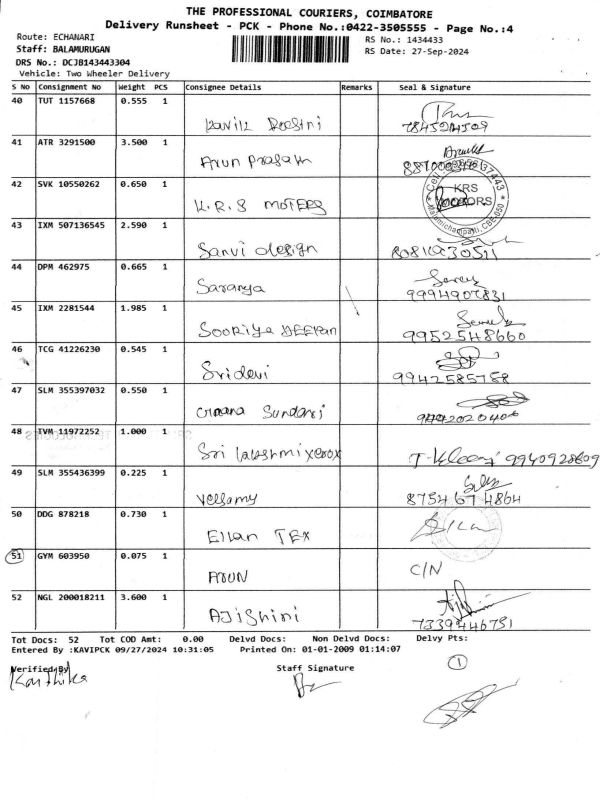 THE PROFESSIONAL COURIERS, COIMBATORE
Delivery Runsheet - PCK - Phone No.:0422-3505555 - Page No.:4
Route: ECHANARI
RS No.: 1434433
Staff: BALAMURUGAN
RS Date: 27-Sep-2024
DRS No.: DCJB143443304
Vehicle: Two Wheeler Delivery
S No Consignment No Weight PCS Consignee Details Remarks Seal & Signature
40 TUT 1157668 0.555 1
41 ATR 3291500 3.500 1
Arun prasath
42 SVK 10550262 0.650 1
K.R.S MOTERS KRS MOTORS
43 IXM 507136545 2.590 1
Sanvi design
44 DPM 462975 0.665 1
Saranya 9994907831
45 IXM 2281544 1.985 1
SOORIYA DEEPAN 9952548660
46 TCG 41226230 0.545 1
Sridevi 9942585758
47 SLM 355397032 0.550 1
Sundari
48 IVM 11972252 1.000 1
Sri lakshmi xerox 9940928609
49 SLM 355436399 0.225 1
Vellamy 8754674864
50 DDG 878218 0.730 1
Ellan TEX
51 GYM 603950 0.075 1
ARUN C/N
52 NGL 200018211 3.600 1
AJISHINI 7339446751
Tot Docs: 52 Tot COD Amt: 0.00 Delvd Docs: Non Delvd Docs: Delvy Pts:
Entered By :KAVIPCK 09/27/2024 10:31:05 Printed On: 01-01-2009 01:14:07
1
Verified By Staff Signature
Karthika